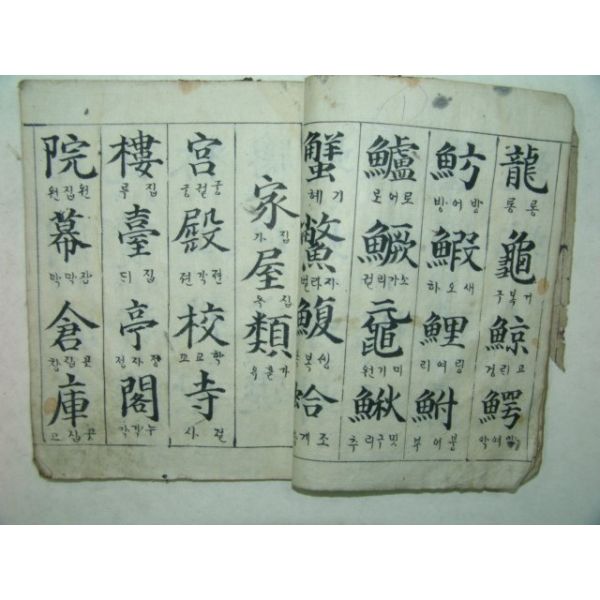 龍 룡 룡 龜 거북구 鯨 고리경 鰐 악어악
魴 방어방 鰕 새오하 鯉 링어리 鮒 부
鱸 로어로 鱖 소가리궐 黿 鰍 밋구리추
蟹 기 혜 鱉 자라별 鰒 蛤 조개
家 집 가 屋 집 옥 類
宮 궁궐궁 殿 전각전 校 학교교 寺 절 사
樓 집 루 臺 집 듸 亭 정자정 閣 누각각
院 원집원 幕 장막막 倉 곳집창 庫 곳집고